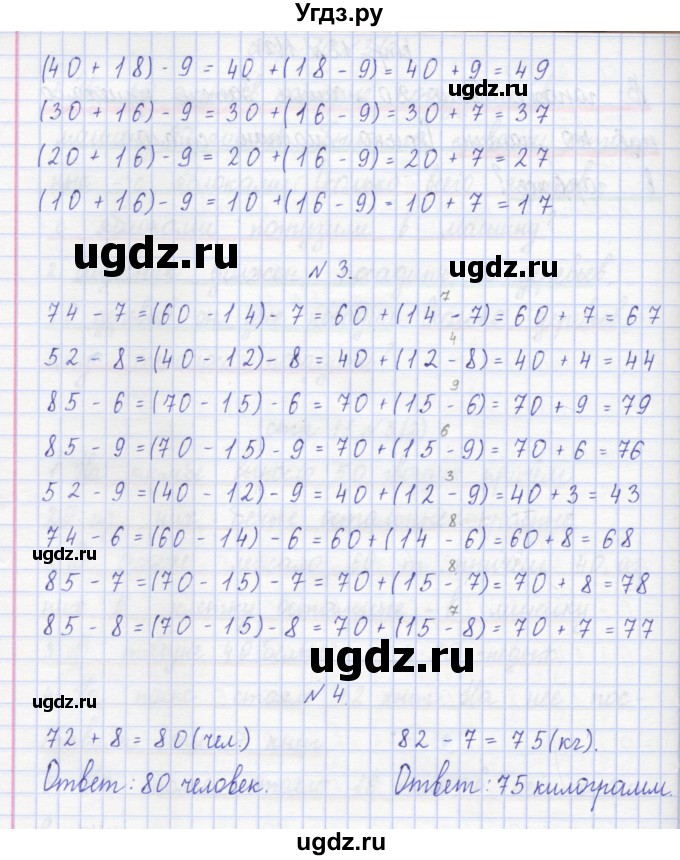 Угдз.ру
(40 + 18) - 9 = 40 + (18 - 9) = 40 + 9 = 49
(30 + 16) - 9 = 30 + (16 - 9) = 30 + 7 = 37
(20 + 16) - 9 = 20 + (16 - 9) = 20 + 7 = 27
(10 + 16) - 9 = 10 + (16 - 9) = 10 + 7 = 17
ugdz.ru
ugdz.ru
N 3.
7
74 - 7 = (60 - 14) - 7 = 60 + (14 - 7) = 60 + 7 = 67
4
52 - 8 = (40 - 12) - 8 = 40 + (12 - 8) = 40 + 4 = 44
9
85 - 6 = (70 - 15) - 6 = 70 + (15 - 6) = 70 + 9 = 79
6
85 - 9 = (70 - 15) - 9 = 70 + (15 - 9) = 70 + 6 = 76
3
52 - 9 = (40 - 12) - 9 = 40 + (12 - 9) = 40 + 3 = 43
8
74 - 6 = (60 - 14) - 6 = 60 + (14 - 6) = 60 + 8 = 68
ugdz.ru
8
85 - 7 = (70 - 15) - 7 = 70 + (15 - 7) = 70 + 8 = 78
7
85 - 8 = (70 - 15) - 8 = 70 + (15 - 8) = 70 + 7 = 77
ugdz.ru
N 4.
ugdz.ru
72 + 8 = 80 (чел.)
82 - 7 = 75 (кг).
Ответ: 80 человек.
Ответ: 75 килограмм.
ugdz.ru
ugdz.ru